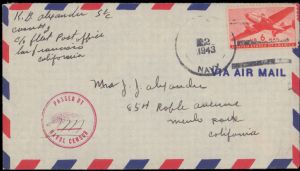 K. D. Alexander S 1/c
c/o Fleet Post office
San Francisco
California
2
1943
NAVY
6
VIA AIR MAIL
Mrs J. J. Alexander
854 Roble avenue
Menlo Park
California
PASSED BY
NAVAL CENSOR